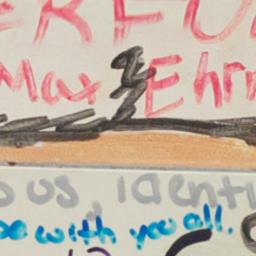 ERFU
Max Ehrm
ous identi
be with you all.